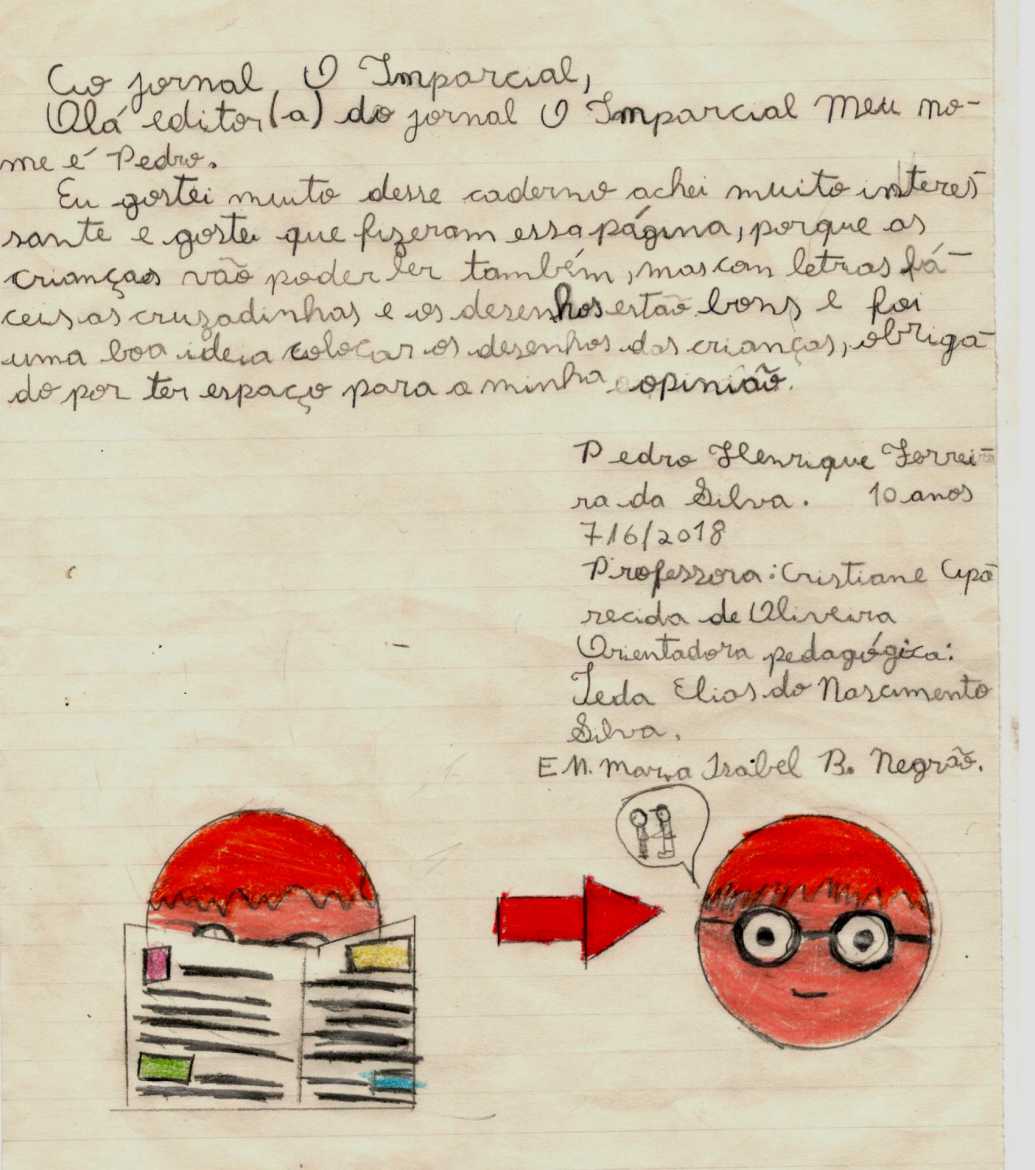 Ao jornal O Imparcial,
Olá editor(a) do jornal O Imparcial Meu no-
me é Pedro.
Eu gostei muito desse caderno achei muito interes-
sante e gostei que fizeram essa página, porque as
crianças vão poder ler também, mas com letras fá-
ceis as cruzadinhas e os desenhos estão bons e foi
uma boa ideia colocar os desenhos das crianças, obriga-
do por ter espaço para a minha opinião.
Pedro Henrique Ferrei-
ra da Silva. 10 anos
7/6/2018
Professora: Cristiane Apa-
recida de Oliveira
Orientadora pedagógica:
Ieda Elias do Nascimento
Silva.
E M. Maria Isabel B. Negrão.